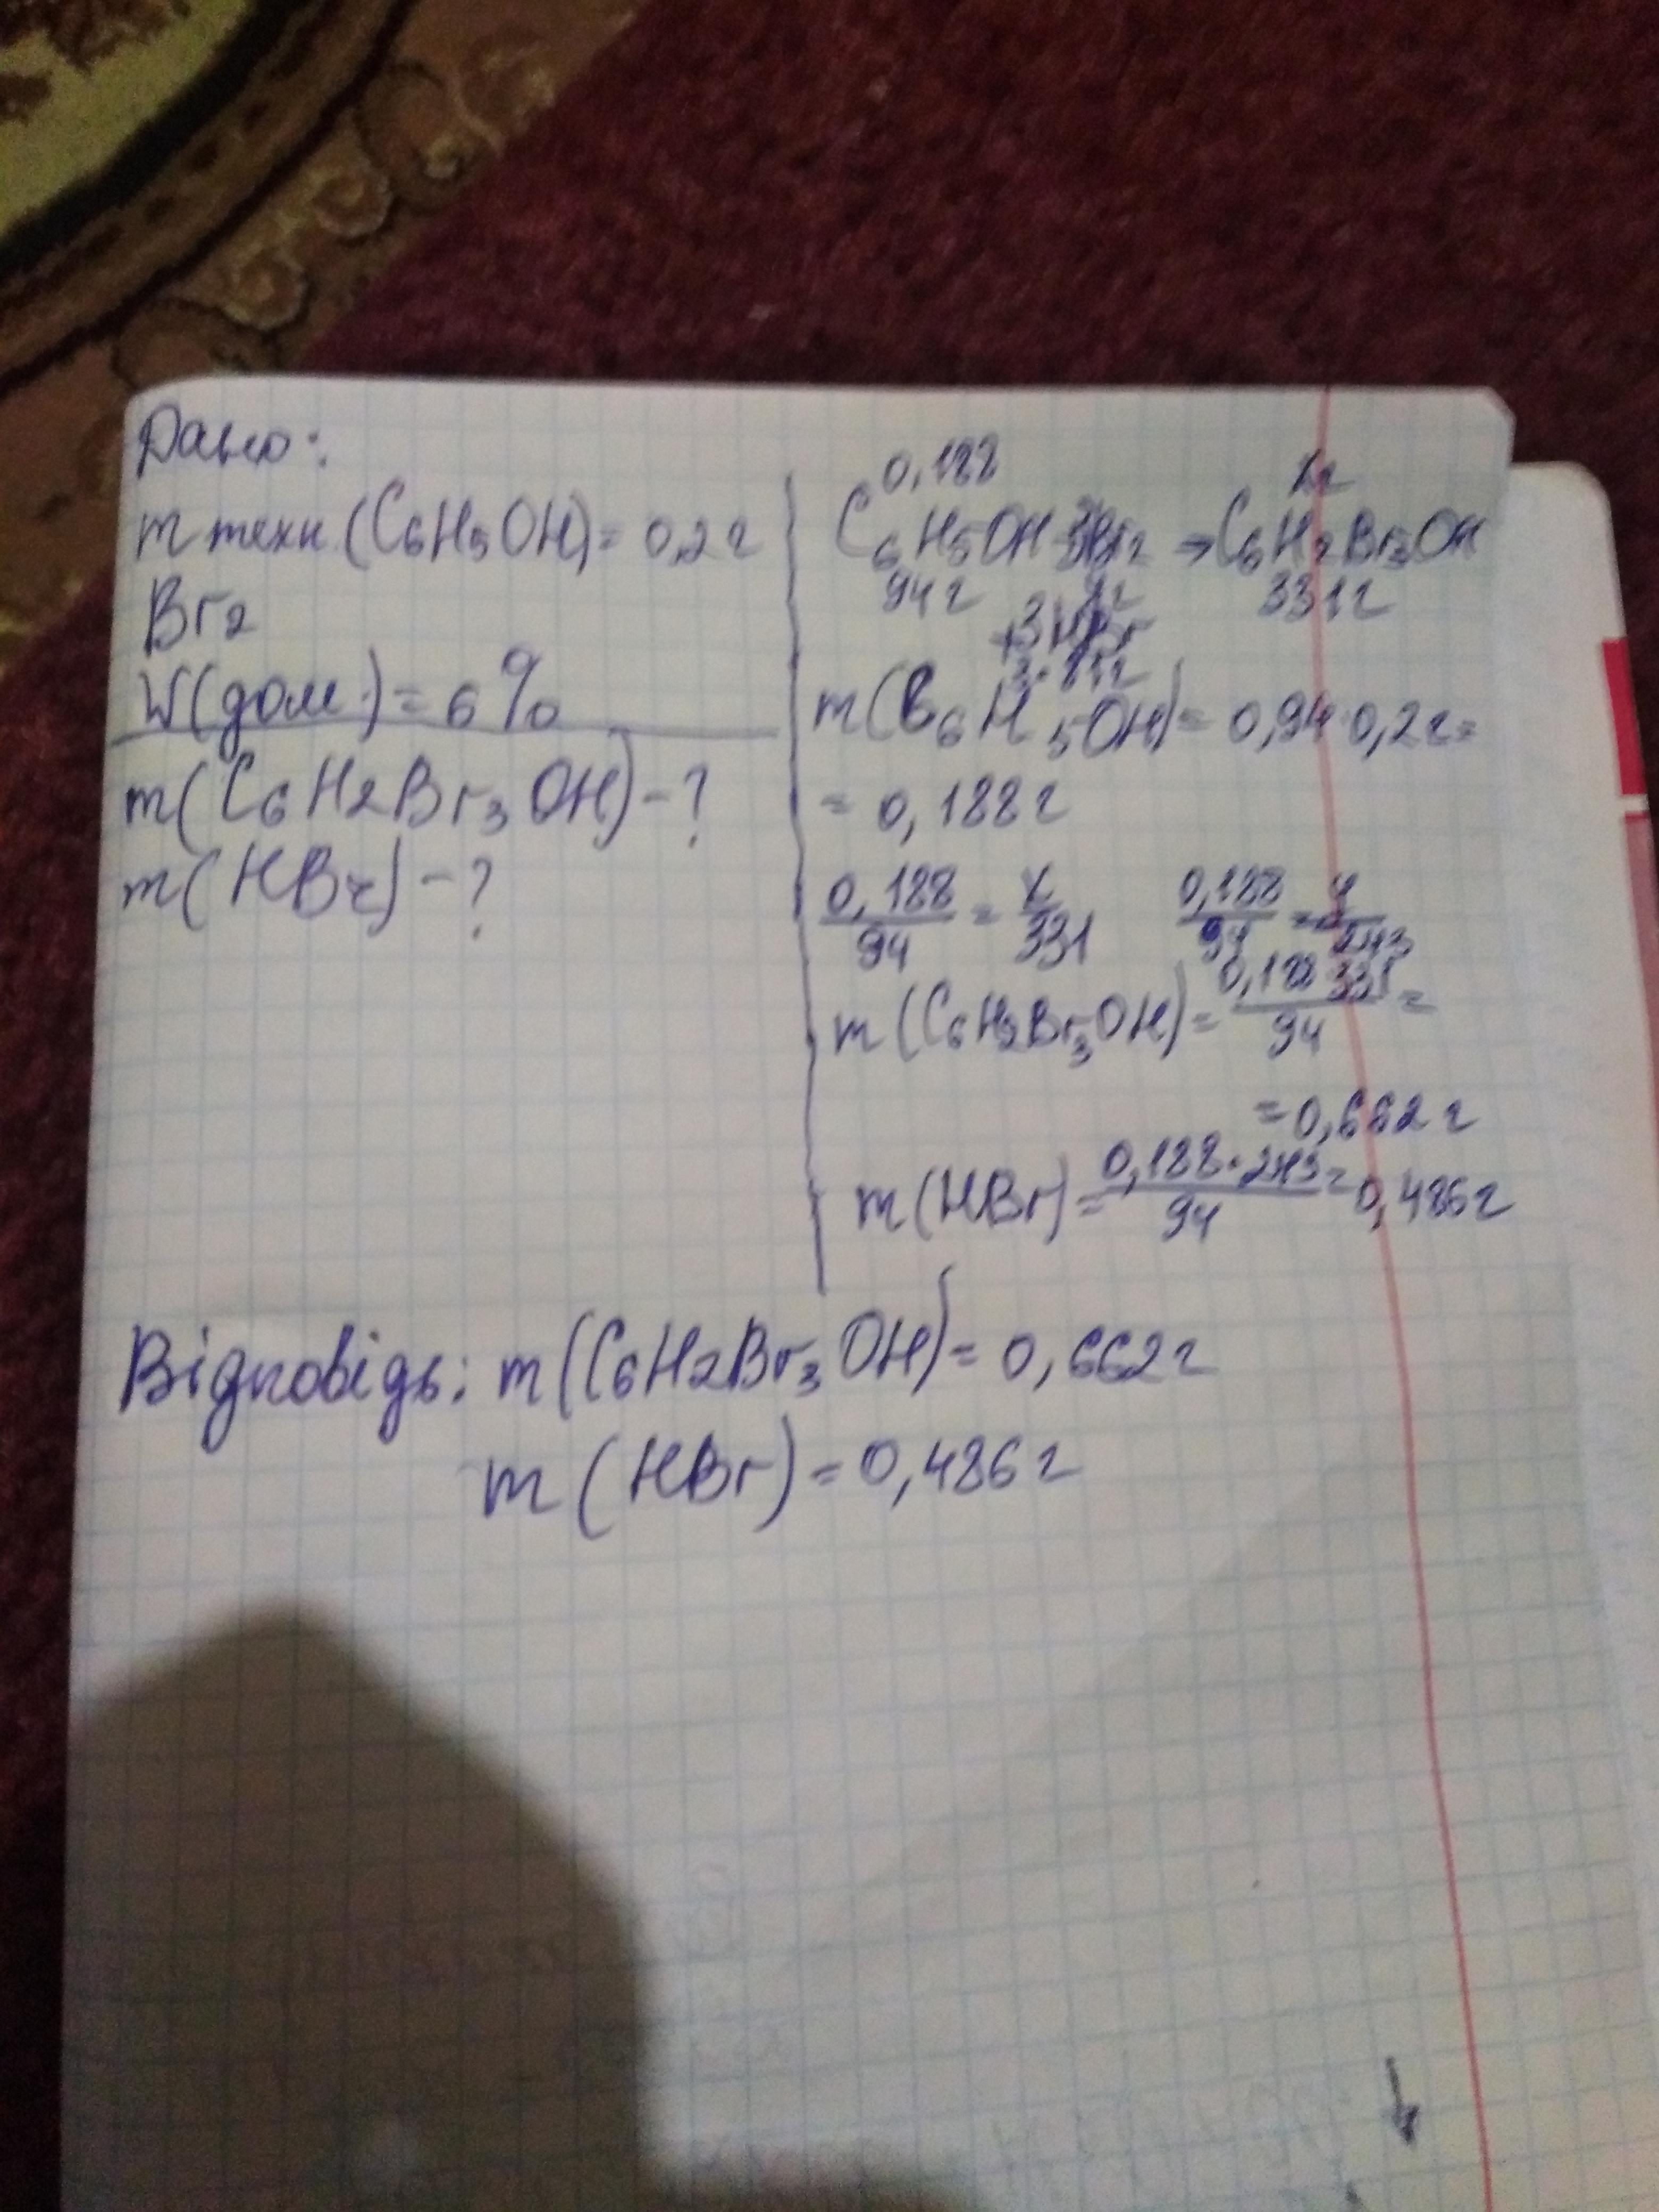 Дано:
m техн.(C6H5OH)= 0,2 г
Br2
W(дом.)= 6%
m(C6H2Br3OH)-?
m(HBr)-?
0,188 xг
C6H5OH 3Br2 → C6H2Br3OH
94г yг 331г
+3HBr
3·81г
m(C6H5OH)= 0,94·0,2г=
= 0,188г
0,188/94 = x/331 0,188/94 = y/243
m(C6H2Br3OH)= 0,188·331/94 =
=0,662г
m(HBr)= 0,188·243/94 =0,486г
Відповідь: m(C6H2Br3OH)= 0,662г
m(HBr)=0,486г